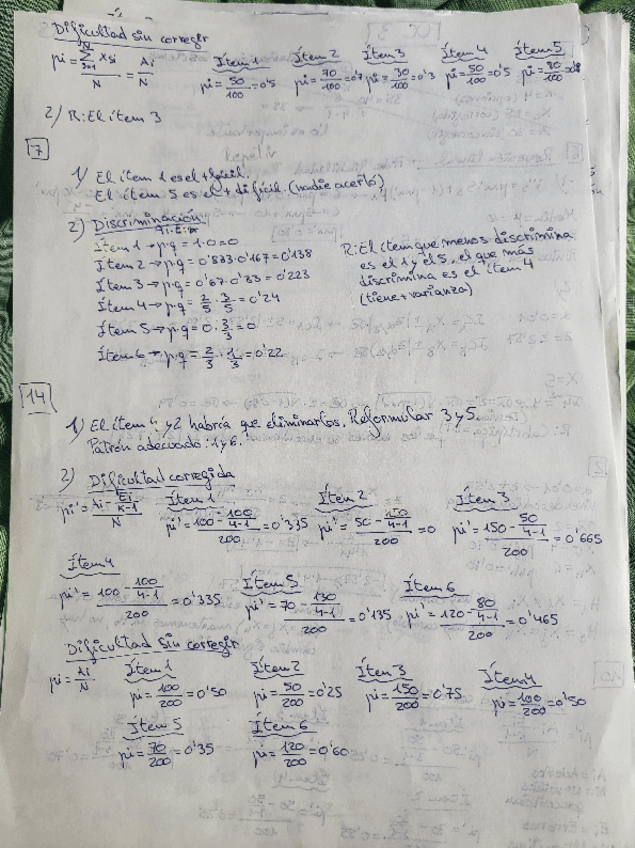 Dificultad sin corregir
pi = Σ Xsi / N = Ai / N
Ítem 1 pi = 50/100 = 0'5
Ítem 2 pi = 70/100 = 0'7
Ítem 3 pi = 30/100 = 0'3
Ítem 4 pi = 50/100 = 0'5
Ítem 5 pi = 80/100
2) R: El ítem 3
7
1) El ítem 1 es el + fácil.
El ítem 5 es el + difícil. (nadie acertó)
2) Discriminación
Ítem 1 → p·q = 1·0 = 0
Ítem 2 → p·q = 0'833·0'167 = 0'138
Ítem 3 → p·q = 0'67·0'33 = 0'223
Ítem 4 → p·q = 2/5 · 3/5 = 0'24
Ítem 5 → p·q = 0 · 3/3 = 0
Ítem 6 → p·q = 2/3 · 1/3 = 0'22
R: El ítem que menos discrimina
es el 1 y el 5, el que más
discrimina es el ítem 4
(tiene + varianza)
14
1) El ítem 4 y 2 habría que eliminarlos. Reformular 3 y 5.
Patrón adecuado: 1 y 6.
2) Dificultad corregida
pi' = (Ai - Ei/(k-1)) / N
Ítem 1 pi' = (100 - 100/(4-1)) / 200 = 0'335
Ítem 2 pi' = (50 - 150/(4-1)) / 200 = 0
Ítem 3 pi' = (150 - 50/(4-1)) / 200 = 0'665
Ítem 4 pi' = (100 - 100/(4-1)) / 200 = 0'335
Ítem 5 pi' = (70 - 130/(4-1)) / 200 = 0'135
Ítem 6 pi' = (120 - 80/(4-1)) / 200 = 0'465
Dificultad sin corregir
pi = Ai / N
Ítem 1 pi = 100/200 = 0'50
Ítem 2 pi = 50/200 = 0'25
Ítem 3 pi = 150/200 = 0'75
Ítem 4 pi = 100/200 = 0'50
Ítem 5 pi = 70/200 = 0'35
Ítem 6 pi = 120/200 = 0'60